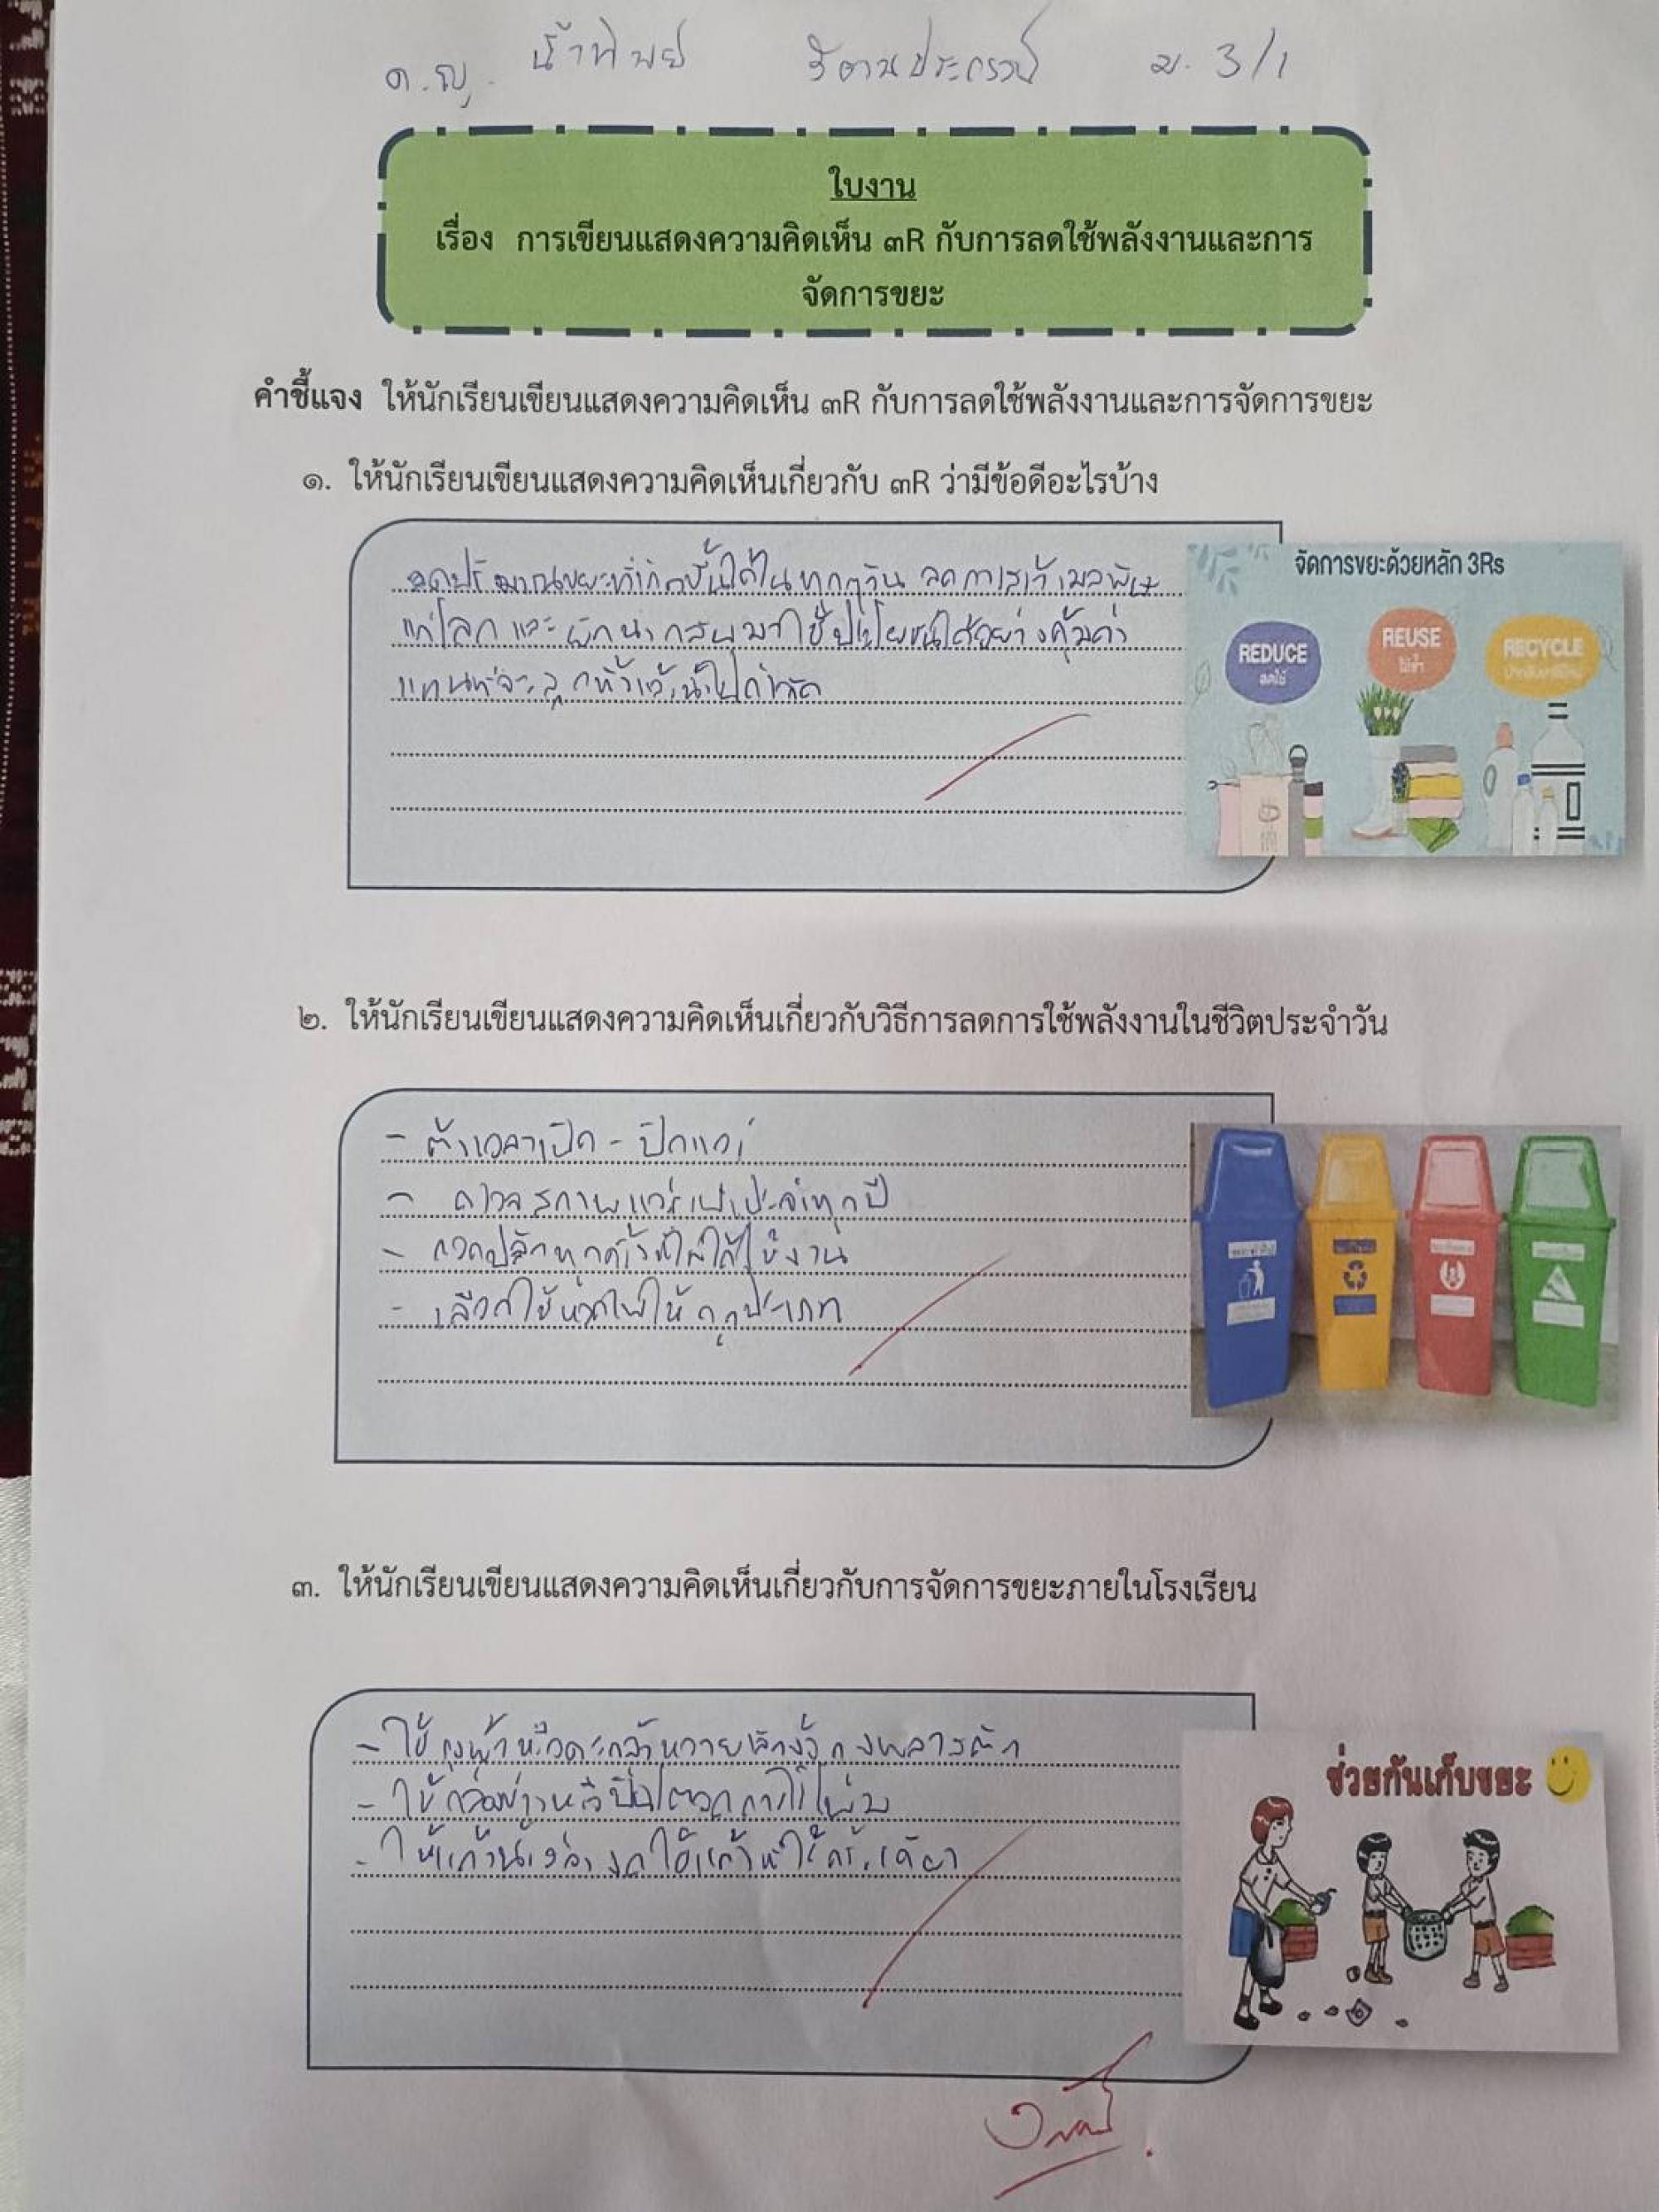 ด.ญ. น้ำทิพย์ ม. 3/1
ใบงาน
เรื่อง การเขียนแสดงความคิดเห็น ๓R กับการลดใช้พลังงานและการ
จัดการขยะ
คำชี้แจง ให้นักเรียนเขียนแสดงความคิดเห็น ๓R กับการลดใช้พลังงานและการจัดการขยะ
๑. ให้นักเรียนเขียนแสดงความคิดเห็นเกี่ยวกับ ๓R ว่ามีข้อดีอะไรบ้าง
ลดปริมาณขยะที่เกิดขึ้นได้ในทุกๆวัน ลดการสร้างมลพิษ
แก่โลก และ นำกลับมาใช้ประโยชน์ได้อย่างคุ้มค่า
แทนที่จะถูกทิ้งแล้วนำไปกำจัด
จัดการขยะด้วยหลัก 3Rs
REDUCE
ลดใช้
REUSE
ใช้ซ้ำ
RECYCLE
๒. ให้นักเรียนเขียนแสดงความคิดเห็นเกี่ยวกับวิธีการลดการใช้พลังงานในชีวิตประจำวัน
- ตั้งเวลาเปิด - ปิดแอร์
- สภาพแอร์เป็นประจำทุกปี
- ถอดปลั๊กทุกครั้งที่ไม่ได้ใช้งาน
- เลือกใช้หลอดไฟให้ถูกประเภท
๓. ให้นักเรียนเขียนแสดงความคิดเห็นเกี่ยวกับการจัดการขยะภายในโรงเรียน
- ใช้ถุงผ้าหรือตะกร้าหวาย ถุงพลาสติก
- ใช้กล่องข้าวหรือปิ่นโต
- ใช้แก้วน้ำ
ช่วยกันเก็บขยะ